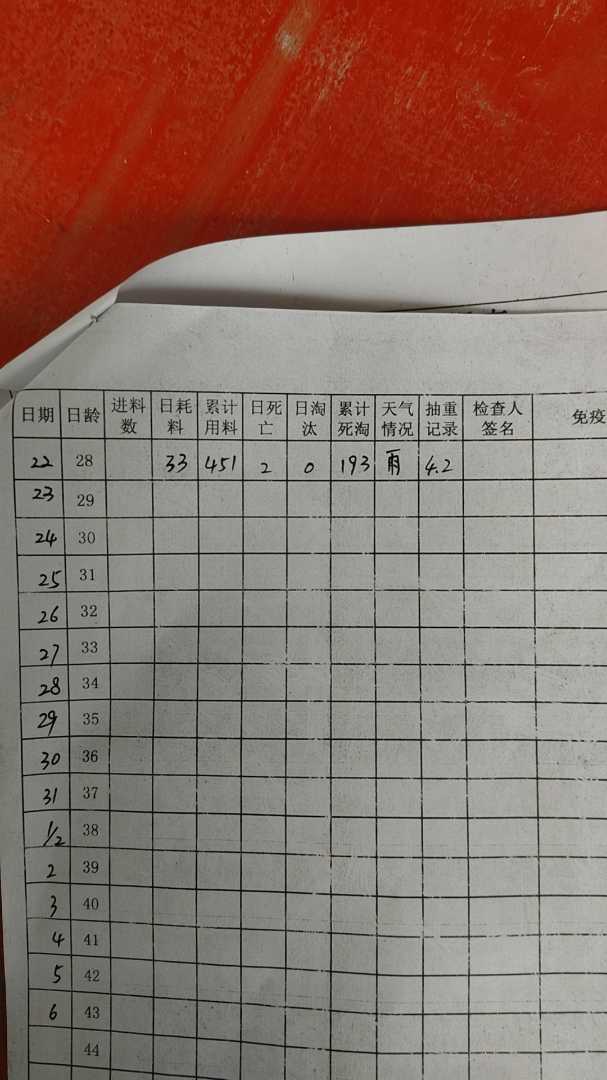 日期 日龄 进料数 日耗料 累计用料 日死亡 日淘汰 累计死淘 天气情况 抽重记录 检查人签名 免疫
22 28 33 451 2 0 193 雨 4.2
23 29
24 30
25 31
26 32
27 33
28 34
29 35
30 36
31 37
1/2 38
2 39
3 40
4 41
5 42
6 43
44